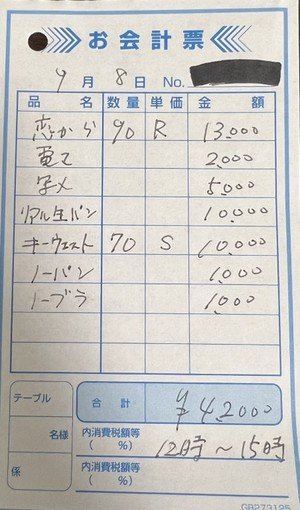 お会計票
9月 8日 No.
品名 数量 単価 金額
恋から 90 R 13,000
電マ 2,000
写メ 5,000
リアル生パン 10,000
キーウェスト 70 S 10,000
ノーパン 1,000
ノーブラ 1,000
テーブル 合計 ¥42,000
名様 内消費税額等 ( %) 12時~15時
係 内消費税額等 ( %)
GB273125